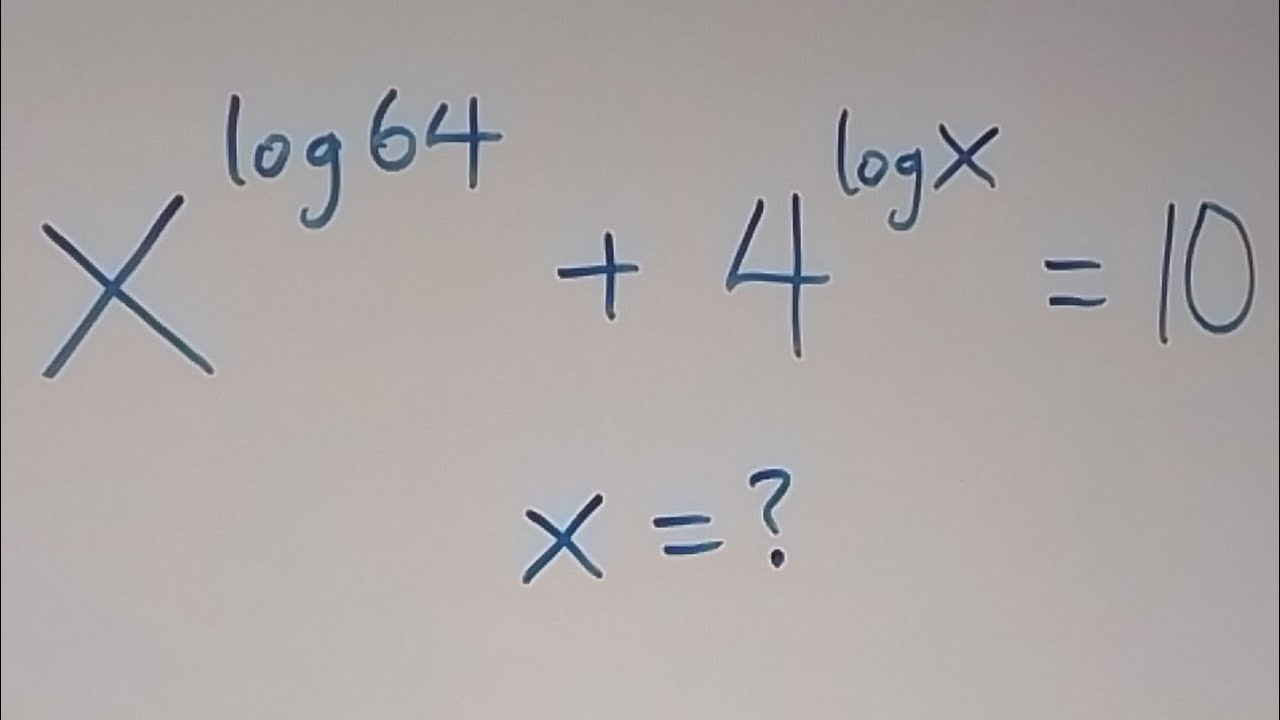 X^log64 + 4^logX = 10
x = ?